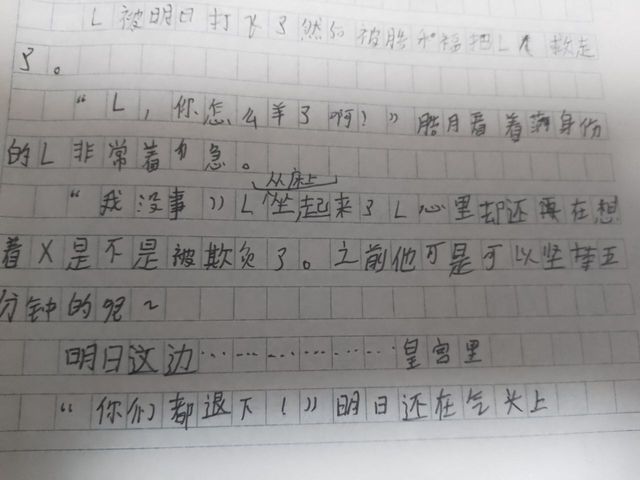 L被明日打飞了然后被皓永福把L人救走
了。
“L，你怎么羊了啊？”皓月看着满身伤
的L非常着急。
从床上
“我没事”L坐起来了L心里却还在想
着X是不是被欺负了。之前他可是可以坚持五
分钟的呢~
明日这边………………皇宫里
“你们都退下！”明日还在气头上